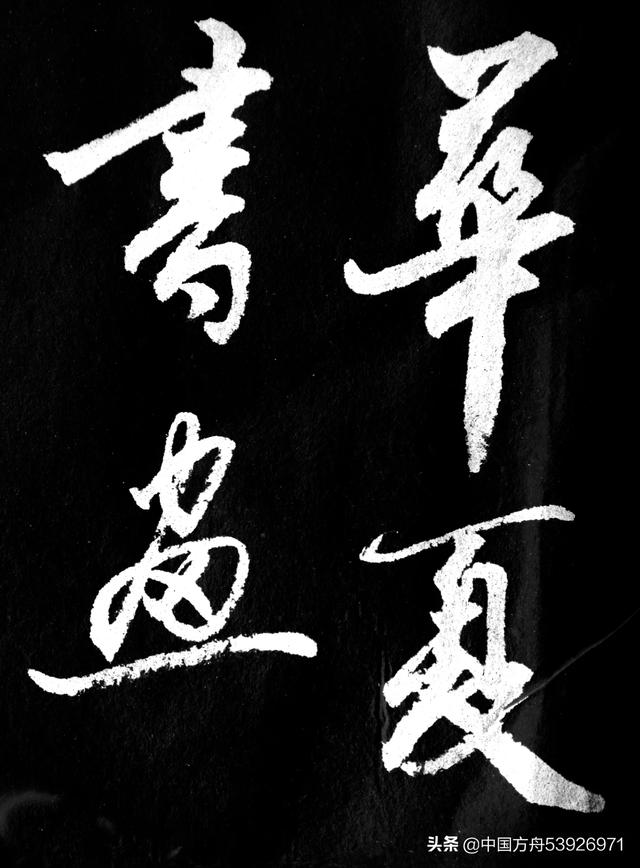 華夏
書畫
头条 @中国方舟53926971